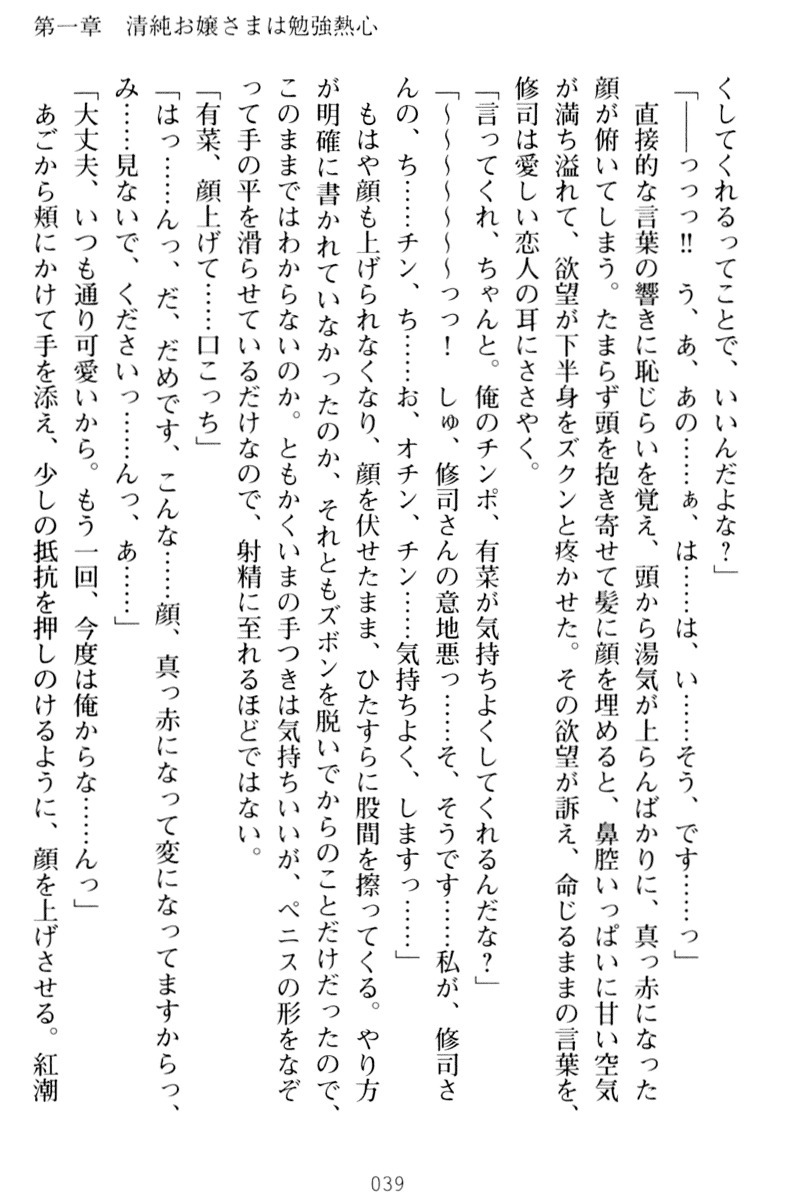 第一章　清純お嬢さまは勉強熱心
くしてくれるってことで、いいんだよな？」
「――っっっ!!　う、あ、あの……ぁ、は……は、い……そう、です……っ」
直接的な言葉の響きに恥じらいを覚え、頭から湯気が上らんばかりに、真っ赤になった
顔が俯いてしまう。たまらず頭を抱き寄せて髪に顔を埋めると、鼻腔いっぱいに甘い空気
が満ち溢れて、欲望が下半身をズクンと疼かせた。その欲望が訴え、命じるままの言葉を、
修司は愛しい恋人の耳にささやく。
「言ってくれ、ちゃんと。俺のチンポ、有菜が気持ちよくしてくれるんだな？」
「～～～～～～っっ！　しゅ、修司さんの意地悪っ……そ、そうです……私が、修司さ
んの、ち……チン、ち……お、オチン、チン……気持ちよく、しますっ……」
もはや顔も上げられなくなり、顔を伏せたまま、ひたすらに股間を擦ってくる。やり方
が明確に書かれていなかったのか、それともズボンを脱いでからのことだけだったので、
このままではわからないのか。ともかくいまの手つきは気持ちいいが、ペニスの形をなぞ
って手の平を滑らせているだけなので、射精に至れるほどではない。
「有菜、顔上げて……口こっち」
「はっ……んっ、だ、だめです、こんな……顔、真っ赤になって変になってますからっ、
み……見ないで、くださいっ……んっ、あ……」
「大丈夫、いつも通り可愛いから。もう一回、今度は俺からな……んっ」
あごから頬にかけて手を添え、少しの抵抗を押しのけるように、顔を上げさせる。紅潮
039